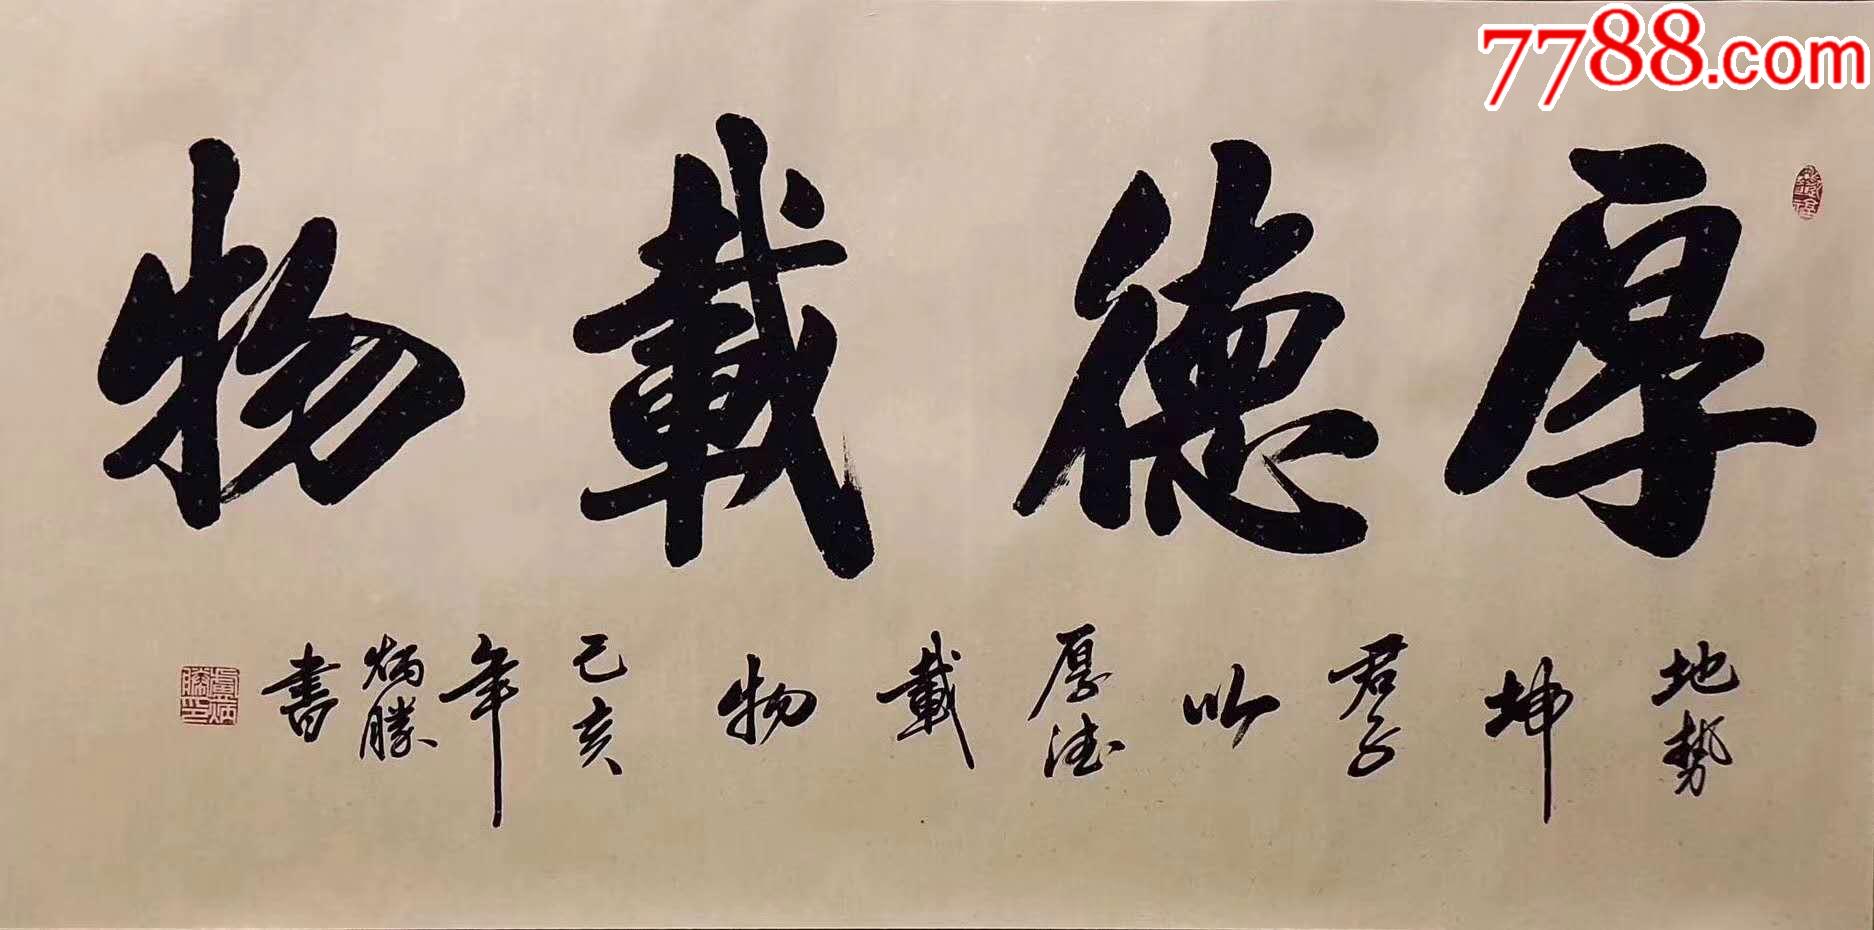 7788.com
厚德載物
地勢坤君子以厚德載物己亥年炳勝書
盧炳勝印